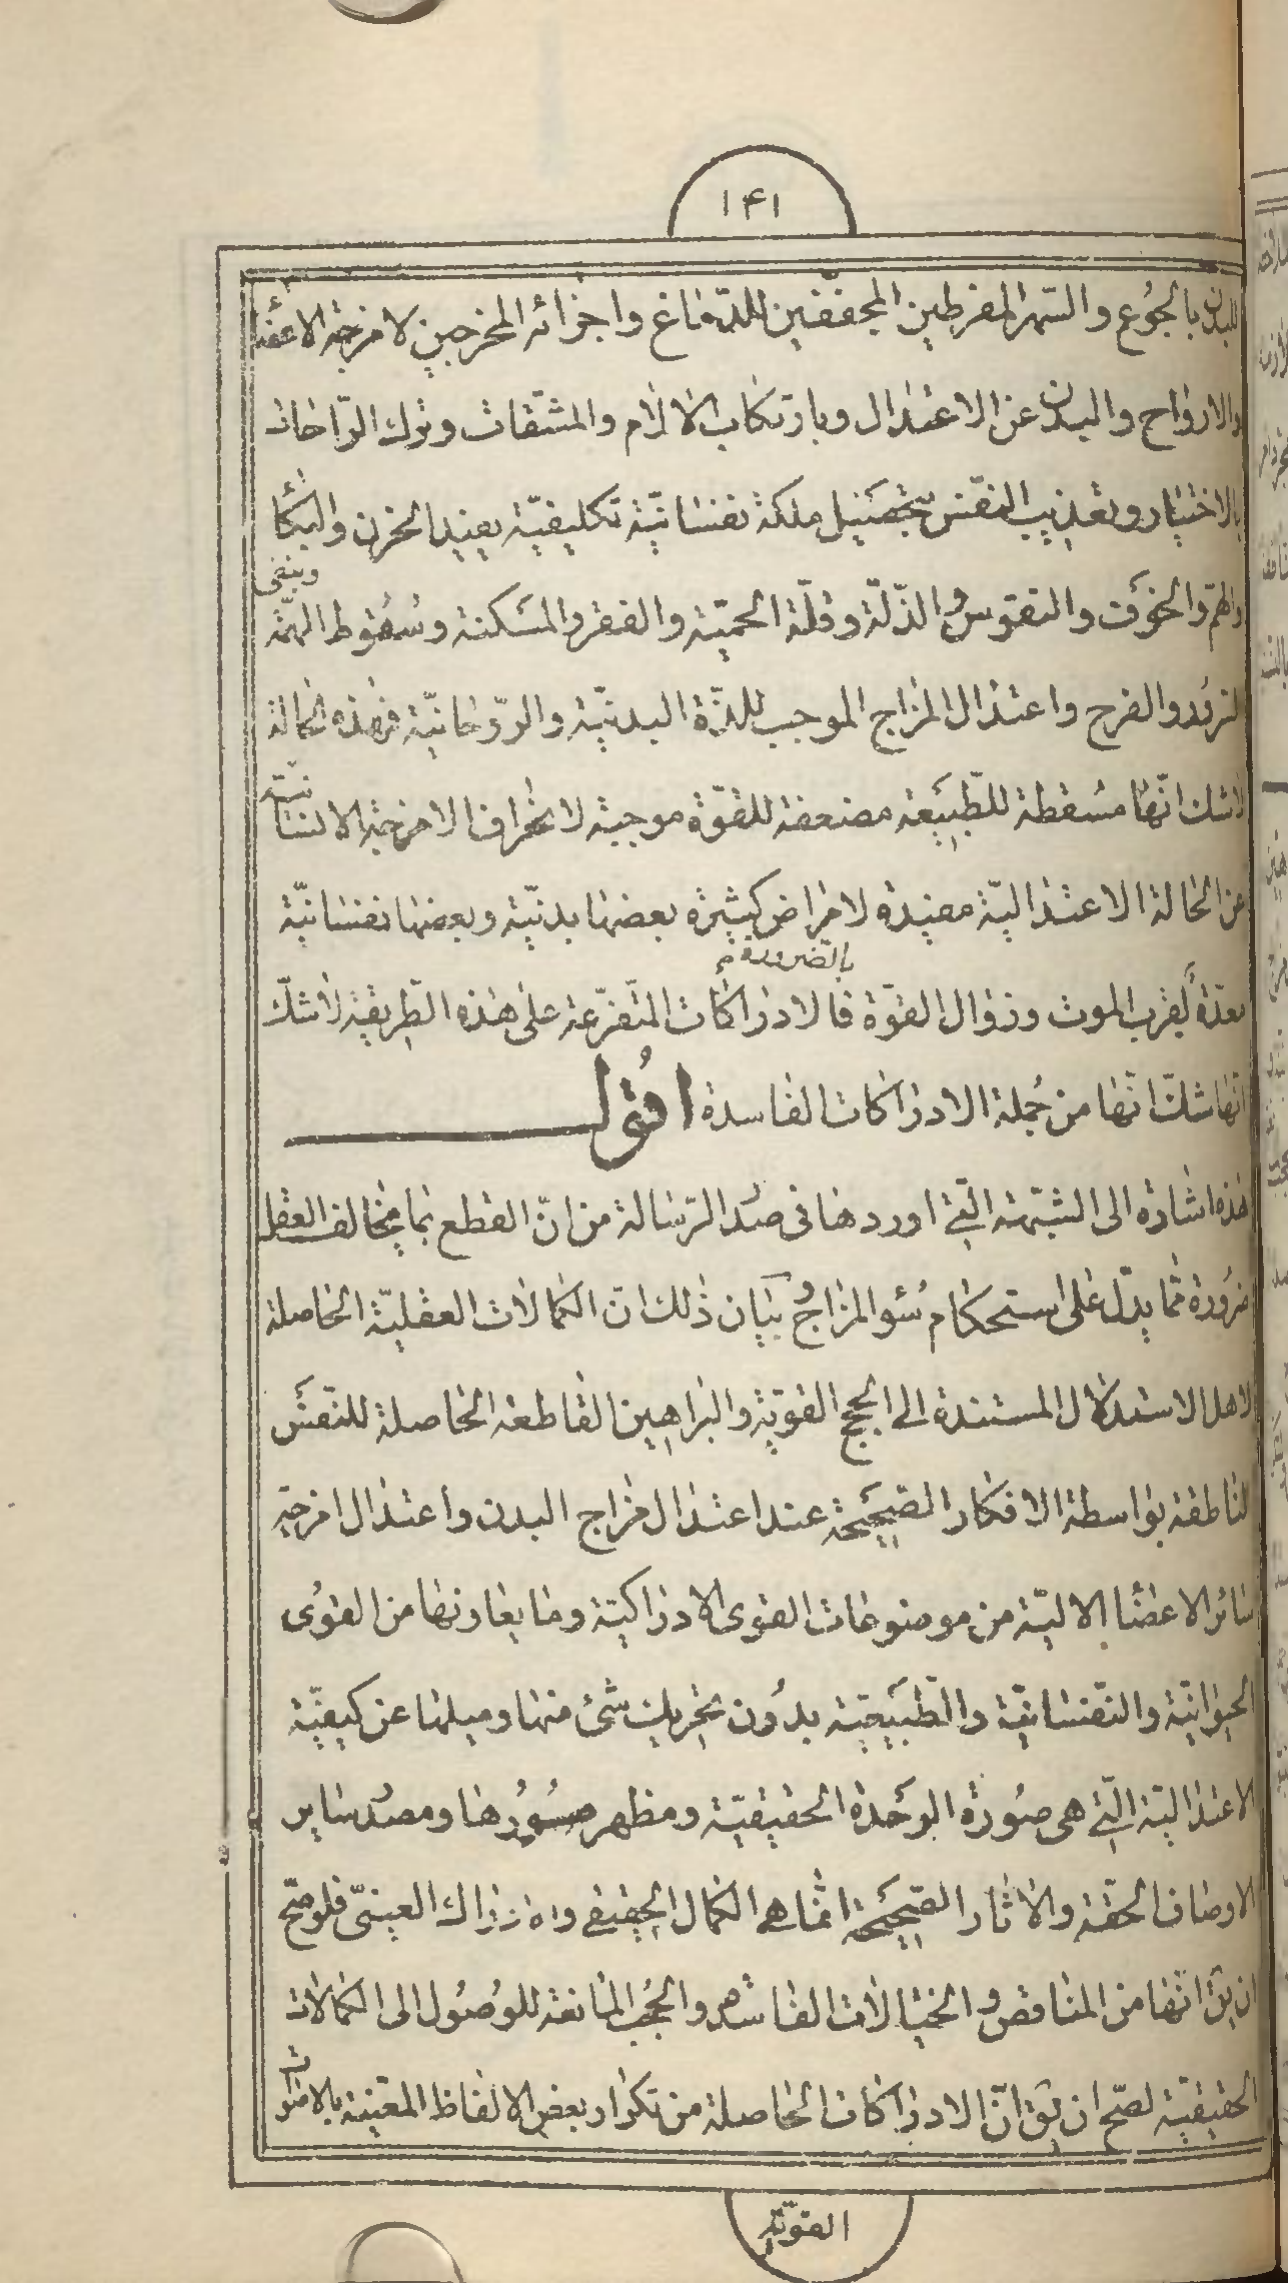 ١٤١
للبدن بالجوع والسهر المفرطين المجففين للدماغ واجزائه المخرجين لامزجة الاعضا
والارواح والبدن عن الاعتدال وبارتكاب الالام والمشقات وترك الراحات
بالاختيار وتعذيب النفس بتحصيل ملكة نفسانية تكليفية يفيد الحزن والبكا
والهم والخوف والنقوس والذلة وقلة الحمية والفقر والمسكنة وسقوط الهمة وينفى
التردد والفرح واعتدال المزاج الموجب للذة البدنية والروحانية فهذه الحالة
لا شك انها مسقطة للطبيعة مضعفة للقوة موجبة لانحراف الامزجة الانسانية
عن الحالة الاعتدالية مفيدة لامراض كثيرة بعضها بدنية وبعضها نفسانية
معدة لقرب الموت وزوال القوة بالضرورة فالادراكات المتفرعة على هذه الطريقة لا شك
انها شك انها من جملة الادراكات الفاسدة اقول
هذه اشارة الى الشبهة التى اوردها فى صدر الرسالة من ان القطع بما يخالف العقل
ضرورة مما يدل على استحكام سوء المزاج وبيان ذلك ان الكمالات العقلية الحاصلة
لاهل الاستدلال المستندة الى الحجج القوية والبراهين القاطعة الحاصلة للنفس
الناطقة بواسطة الافكار الصحيحة عند اعتدال مزاج البدن واعتدال امزجة
سائر الاعضا الالية من موضوعات القوى الادراكية وما يعاونها من القوى
الحيوانية والنفسانية والطبيعية بدون تحريك شئ منها وميلها عن كيفية
الاعتدالية التى هى صورة الوحدة الحقيقية ومظهر صورها ومصدر ساير
الاوصاف الحقة والاثار الصحيحة انما هى الكمال الحقيقى والادراك العينى فلو صح
ان يق انها من المناقص والخيالات الفاسده والحجب المانعة للوصول الى الكمالات
الحقيقية لصح ان يق ان الادراكات الحاصلة من تكرار بعض الالفاظ المعينة بالاصوات
القوية